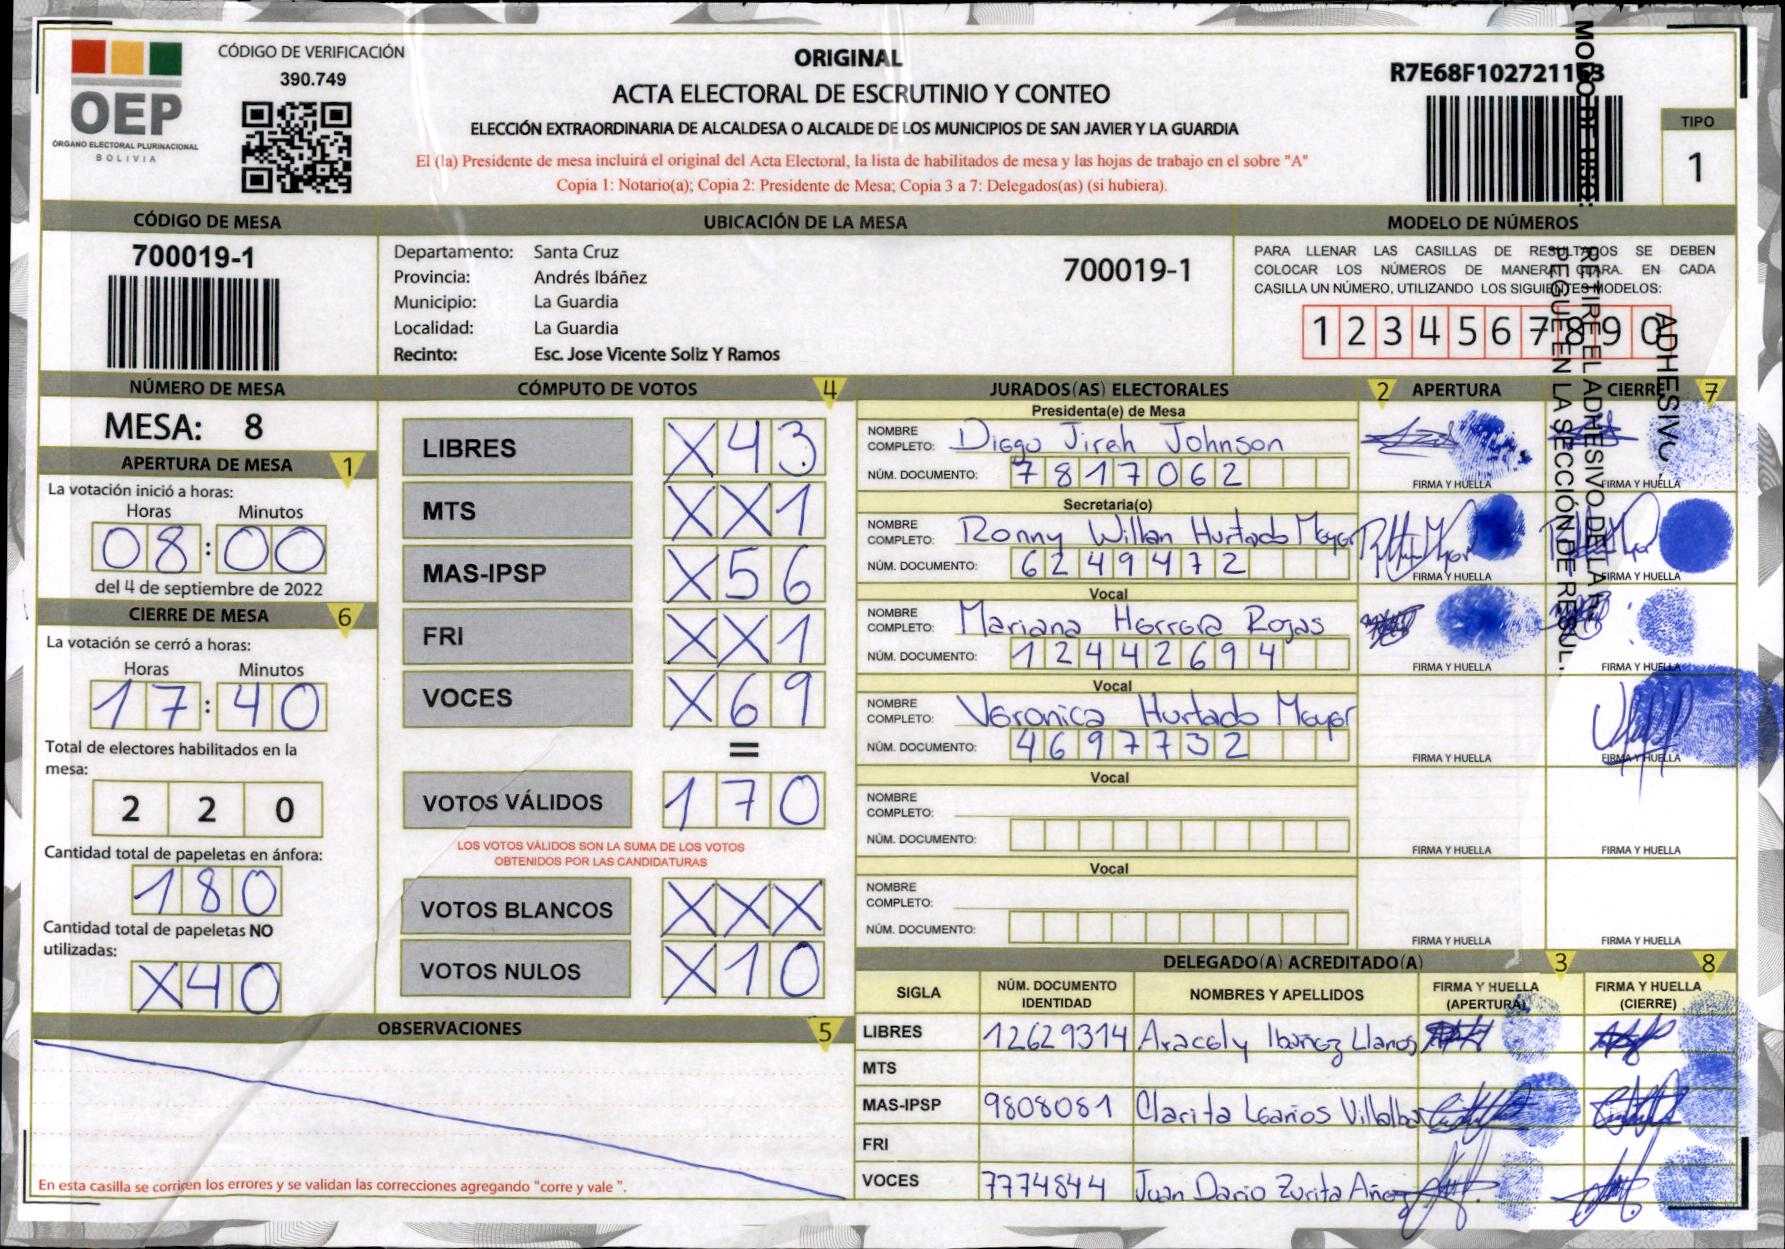 OEP
ÓRGANO ELECTORAL PLURINACIONAL
BOLIVIA
CÓDIGO DE VERIFICACIÓN
390.749
ORIGINAL
ACTA ELECTORAL DE ESCRUTINIO Y CONTEO
ELECCIÓN EXTRAORDINARIA DE ALCALDESA O ALCALDE DE LOS MUNICIPIOS DE SAN JAVIER Y LA GUARDIA
El (la) Presidente de mesa incluirá el original del Acta Electoral, la lista de habilitados de mesa y las hojas de trabajo en el sobre "A"
Copia 1: Notario(a); Copia 2: Presidente de Mesa; Copia 3 a 7: Delegados(as) (si hubiera).
TIPO
1
CÓDIGO DE MESA
700019-1
UBICACIÓN DE LA MESA
Departamento: Santa Cruz
Provincia: Andrés Ibáñez
Municipio: La Guardia
Localidad: La Guardia
Recinto: Esc. Jose Vicente Soliz Y Ramos
700019-1
MODELO DE NÚMEROS
PARA LLENAR LAS CASILLAS DE RESULTADOS SE DEBEN
COLOCAR LOS NÚMEROS DE MANERA CLARA. EN CADA
CASILLA UN NÚMERO, UTILIZANDO LOS SIGUIENTES MODELOS:
1 2 3 4 5 6 7 8 9 0
MODO DE USO:
RETIRE EL ADHESIVO DE LA
PEGUE EN LA SECCIÓN DE RESUL
ADHESIVO
NÚMERO DE MESA
MESA: 8
APERTURA DE MESA 1
La votación inició a horas:
Horas Minutos
08:00
del 4 de septiembre de 2022
CIERRE DE MESA 6
La votación se cerró a horas:
Horas Minutos
17:40
Total de electores habilitados en la
mesa:
2 2 0
Cantidad total de papeletas en ánfora:
180
Cantidad total de papeletas NO
utilizadas:
X40
CÓMPUTO DE VOTOS 4
LIBRES X43
MTS XX1
MAS-IPSP X56
FRI XX1
VOCES X69
=
VOTOS VÁLIDOS 170
LOS VOTOS VÁLIDOS SON LA SUMA DE LOS VOTOS
OBTENIDOS POR LAS CANDIDATURAS
VOTOS BLANCOS XXX
VOTOS NULOS X10
OBSERVACIONES 5
En esta casilla se corrigen los errores y se validan las correcciones agregando "corre y vale ".
JURADOS(AS) ELECTORALES 2 APERTURA CIERRE 7
Presidenta(e) de Mesa
NOMBRE
COMPLETO: Diego Jireh Johnson
NÚM. DOCUMENTO: 7817062
FIRMA Y HUELLA FIRMA Y HUELLA
Secretaria(o)
NOMBRE
COMPLETO: Ronny Willan Hurtado Mayor
NÚM. DOCUMENTO: 6249472
FIRMA Y HUELLA FIRMA Y HUELLA
Vocal
NOMBRE
COMPLETO: Mariana Herrera Rojas
NÚM. DOCUMENTO: 12442694
FIRMA Y HUELLA FIRMA Y HUELLA
Vocal
NOMBRE
COMPLETO: Veronica Hurtado Mayor
NÚM. DOCUMENTO: 4697732
FIRMA Y HUELLA FIRMA Y HUELLA
Vocal
NOMBRE
COMPLETO:
NÚM. DOCUMENTO:
FIRMA Y HUELLA FIRMA Y HUELLA
Vocal
NOMBRE
COMPLETO:
NÚM. DOCUMENTO:
FIRMA Y HUELLA FIRMA Y HUELLA
DELEGADO(A) ACREDITADO(A) 3 8
SIGLA NÚM. DOCUMENTO IDENTIDAD NOMBRES Y APELLIDOS FIRMA Y HUELLA (APERTURA) FIRMA Y HUELLA (CIERRE)
LIBRES 12629314 Aracely Ibañez Llanos
MTS
MAS-IPSP 9808081 Clarita Leaños Villalba
FRI
VOCES 7774844 Juan Dario Zurita Añez